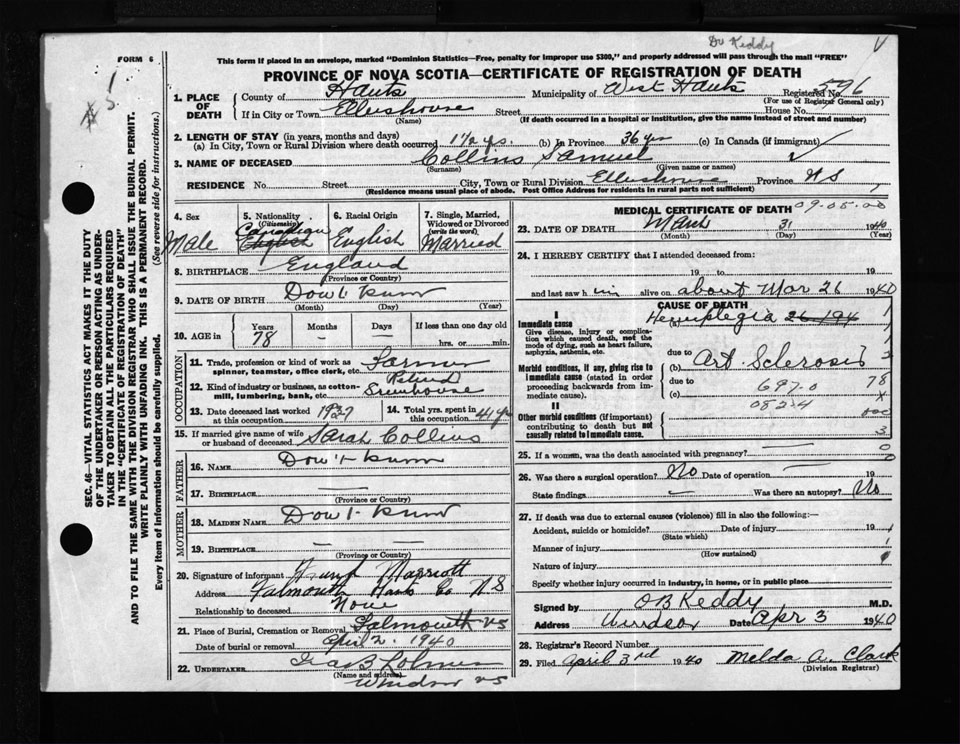 Dr Keddy V
FORM 6
This form if placed in an envelope, marked "Dominion Statistics—Free, penalty for improper use $300," and properly addressed will pass through the mail "FREE"
PROVINCE OF NOVA SCOTIA—CERTIFICATE OF REGISTRATION OF DEATH
SEC. 46—VITAL STATISTICS ACT MAKES IT THE DUTY
OF THE UNDERTAKER OR PERSON ACTING AS UNDER-
TAKER TO OBTAIN ALL THE PARTICULARS REQUIRED
IN THE "CERTIFICATE OF REGISTRATION OF DEATH"
AND TO FILE THE SAME WITH THE DIVISION REGISTRAR WHO SHALL ISSUE THE BURIAL PERMIT.
WRITE PLAINLY WITH UNFADING INK. THIS IS A PERMANENT RECORD.
Every item of Information should be carefully supplied. (See reverse side for instructions.)
1. PLACE OF DEATH County of Hants Municipality of West Hants Registered No. 596
(For use of Registrar General only)
If in City or Town Ellershouse Street House No.
(Name) (If death occurred in a hospital or institution, give the name instead of street and number)
2. LENGTH OF STAY (in years, months and days)
(a) In City, Town or Rural Division where death occurred 1½ yrs. (b) In Province 36 yrs (c) In Canada (if immigrant)
3. NAME OF DECEASED Collins Samuel
(Surname) (Given name or names)
RESIDENCE No. Street City, Town or Rural Division Ellershouse Province NS
(Residence means usual place of abode. Post Office Address for residents in rural parts not sufficient)
4. Sex Male
5. Nationality (Citizenship) Canadian English
6. Racial Origin English
7. Single, Married, Widowed or Divorced (write the word) Married
8. BIRTHPLACE England
(Province or Country)
9. DATE OF BIRTH Don't Know
(Month) (Day) (Year)
10. AGE in Years Months Days If less than one day old
78 — — hrs. or min.
OCCUPATION
11. Trade, profession or kind of work as spinner, teamster, office clerk, etc. Farmer
12. Kind of industry or business, as cotton-mill, lumbering, bank, etc. Retired
13. Date deceased last worked at this occupation 1927
14. Total yrs. spent in this occupation 41 yrs
15. If married give name of wife or husband of deceased Sarah Collins
FATHER
16. NAME Don't Know
17. BIRTHPLACE —
(Province or Country)
MOTHER
18. MAIDEN NAME Don't Know
19. BIRTHPLACE — —
(Province or Country)
20. Signature of informant Marriott
Address Falmouth Hants Co NS
Relationship to deceased None
21. Place of Burial, Cremation or Removal Falmouth NS
Date of burial or removal April 2. 1940
22. UNDERTAKER Ira B
(Name and address)
Windsor NS
MEDICAL CERTIFICATE OF DEATH 09-05-00
23. DATE OF DEATH March 31 1940
(Month) (Day) (Year)
24. I HEREBY CERTIFY that I attended deceased from:
19 to 19
and last saw him alive on about Mar 26 1940
CAUSE OF DEATH
I
Immediate cause
Give disease, injury or complication which caused death, not the mode of dying, such as heart failure, asphyxia, asthenia, etc.
Hemiplegia 26/94
Morbid conditions, if any, giving rise to immediate cause (stated in order proceeding backwards from immediate cause).
due to
(b) Art Sclerosis
due to 697-0 78
(c) 082-4
II
Other morbid conditions (if important) contributing to death but not causally related to immediate cause.
25. If a woman, was the death associated with pregnancy? —
26. Was there a surgical operation? No Date of operation — 19
State findings — Was there an autopsy? No
27. If death was due to external causes (violence) fill in also the following:—
Accident, suicide or homicide? Date of injury 19
(State which)
Manner of injury
(How sustained)
Nature of injury
Specify whether injury occurred in industry, in home, or in public place
Signed by OB Keddy M.D.
Address Windsor Date Apr 3 1940
28. Registrar's Record Number
29. Filed April 3rd 1940 Melda A. Clark
(Division Registrar)